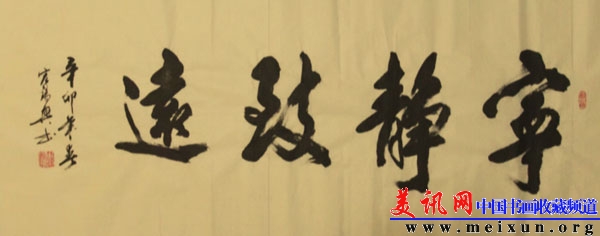 寧靜致遠
辛卯春
书
美讯网 中国书画收藏频道
www.meixun.org